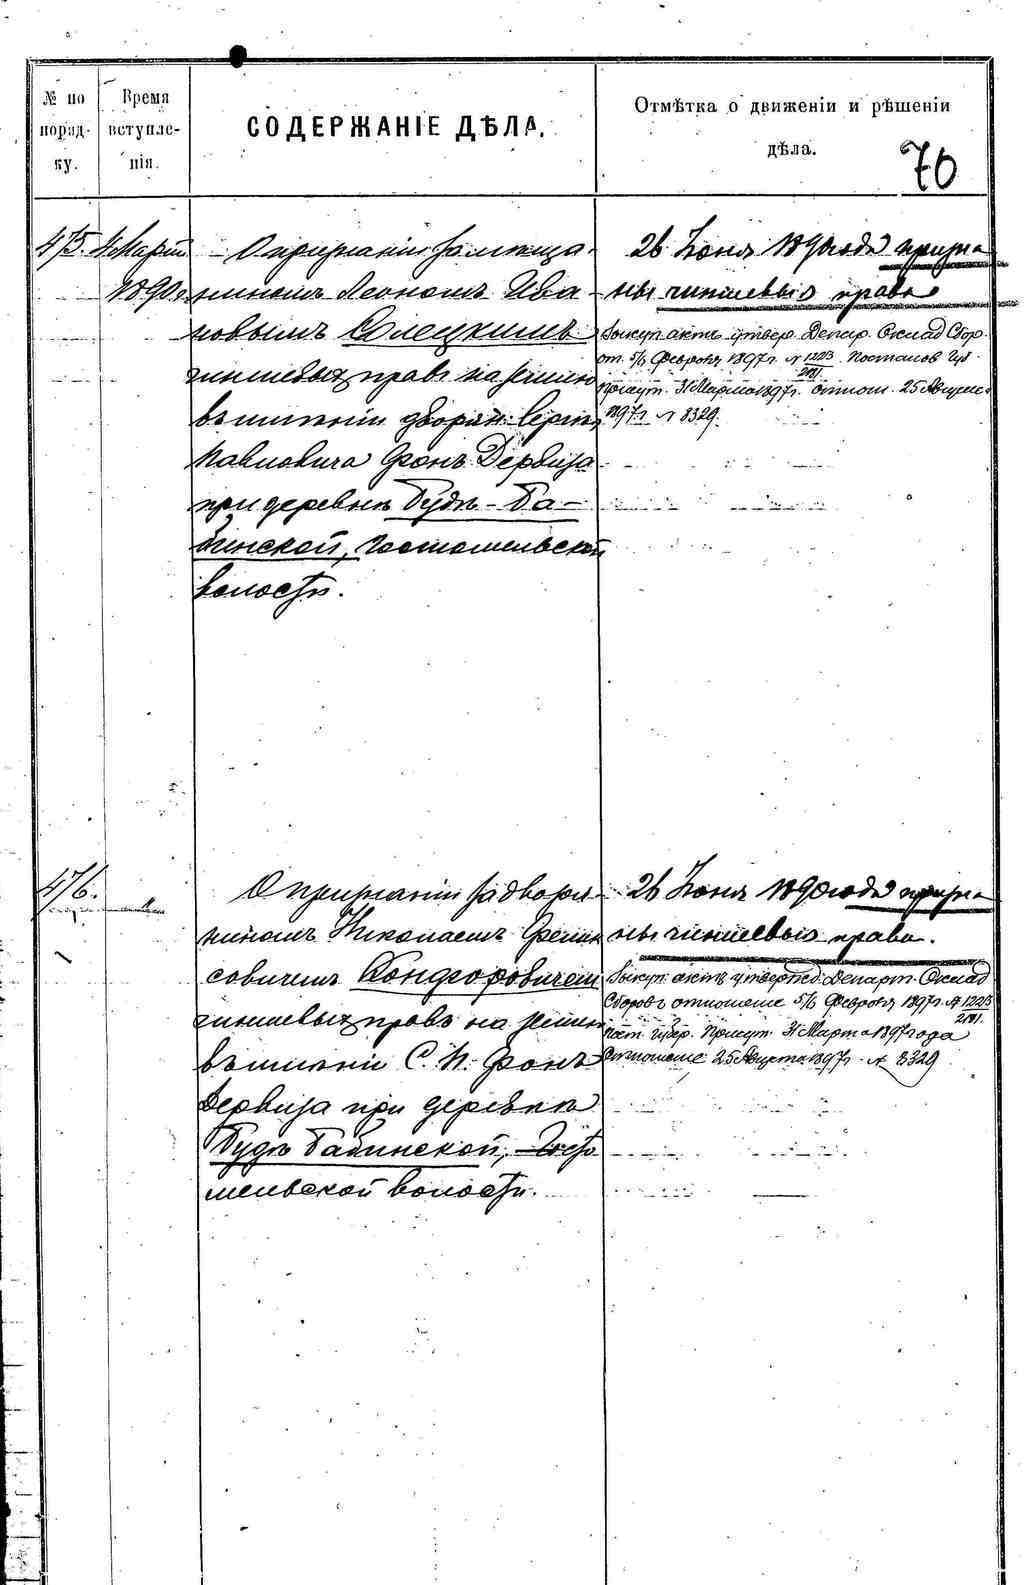 № по поряд- ку.
Время вступле- нія.
СОДЕРЖАНІЕ ДѢЛА.
Отмѣтка о движеніи и рѣшеніи дѣла.
70
475.
4 Марта
1890 г.
О признаніи за мѣща-
ниномъ Леономъ Ива-
новымъ Солецкимъ
чиншевыхъ правъ на землю
въ имѣніи дворян. Сергѣя
Павловича Фонъ Дервиза
при деревнѣ Будѣ-Ба-
бинской, Гостомельской
волости.
26 Іюня 1890 года призна
ны чиншевыя права
Выкуп. актъ утвер. Депар. Оклад Сбор.
от. 5/6 Февраля 1897 г. № 1223 Постанов Губ.
Присут. 31 Марта 1897 г. отнош. 25 Августа
1897 г. № 8329.
476.
О признаніи за дворя-
ниномъ Николаемъ
совичемъ Кондоровичемъ
чиншевыхъ правъ на землю
въ имѣніи С. П. Фонъ
Дервиза при деревнѣ
Будѣ Бабинской, Госто
мельской волости.
26 Іюня 1890 года призна
ны чиншевыя права.
Выкуп. актъ утвержд. Департ. Оклад
Сборовъ отношеніе 5/6 Февраля 1897 г. № 1223
Пост. Губер. Присут. 31 Марта 1897 года
Отношеніе 25 Августа 1897 г. № 8329